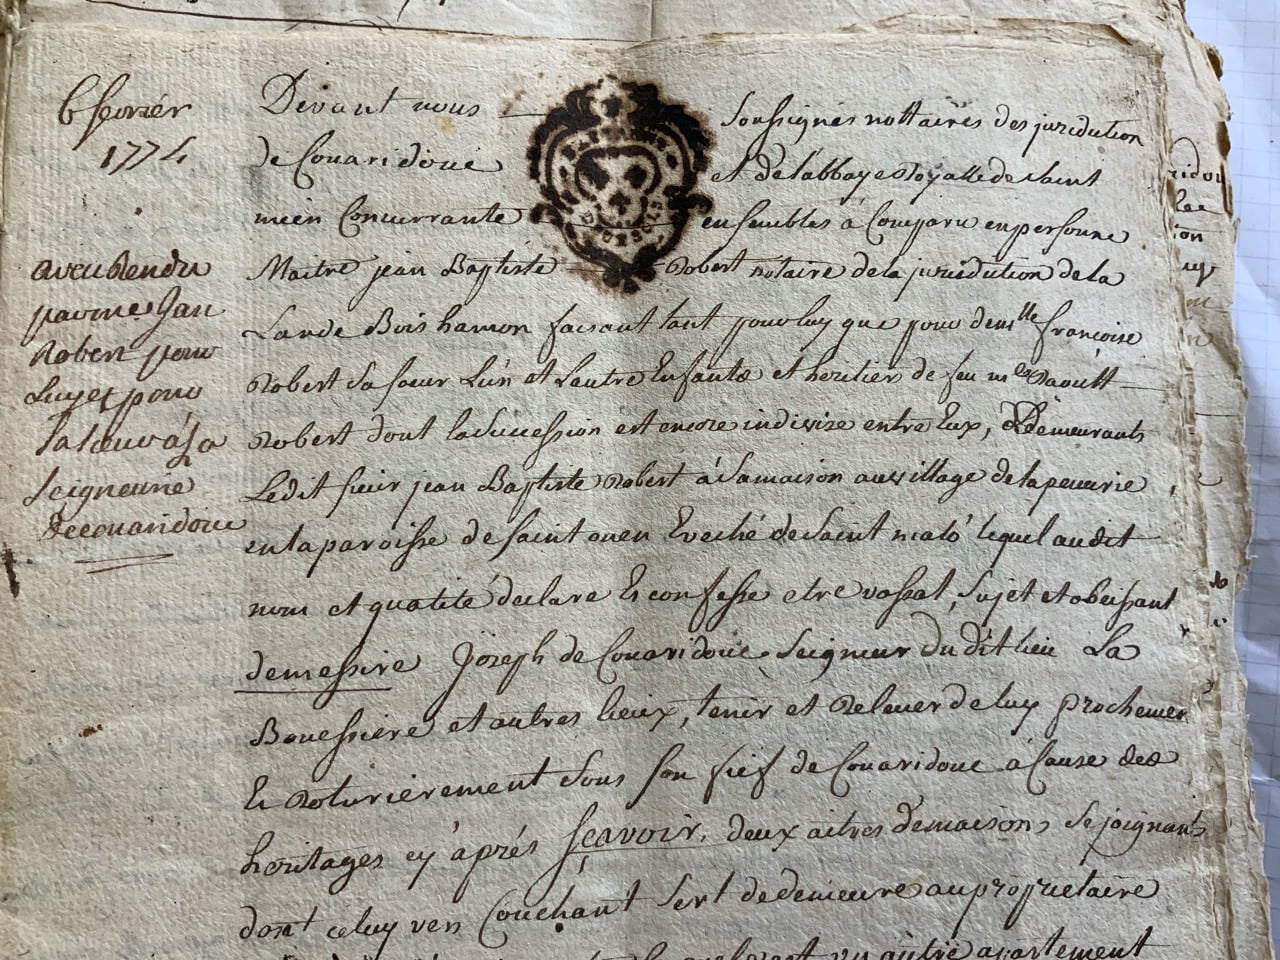 6 fevrier
1774
aveu Rendu
par me Jan
Robert pour
Luy et pour
sa soeur a la
Seigneurie
de couaridouc
Devant nous Soussignes nottaires des juridution
de Couaridouc et de labbaye Royalle de Saint
méen Concurrante ensembles à Comparu en personne
Maitre jean Baptiste Robert notaire de la juridution de la
Lande Bois hamon faisant tant pour luy que pour demlle francoise
Robert Sa soeur Lún et Lautre Enfants et heritier de feu me Raoult
Robert dont la Succession est encore indivize entre Eux, Demeurants
Ledit sieur jean Baptiste Robert à Sa maison au village de la
en la paroisse de Saint ouen Eveché de Saint malo lequel audit
nom et qualité declare Et confesse etre vassal, Sujet et obeissant
de messire Jozeph de Couaridouc Seigneur Du dit lieu La
Bouessiere et autres lieux, tenir et Relever de luy prochemen
Et Roturiérement Sous Son fief de Couaridouc à Cause des
heritages cy áprés Sçavoir, deux aitres de maisons Se joignants
dont celuy vers Couchant Sert de demeure au propriétaire
un autre apartement